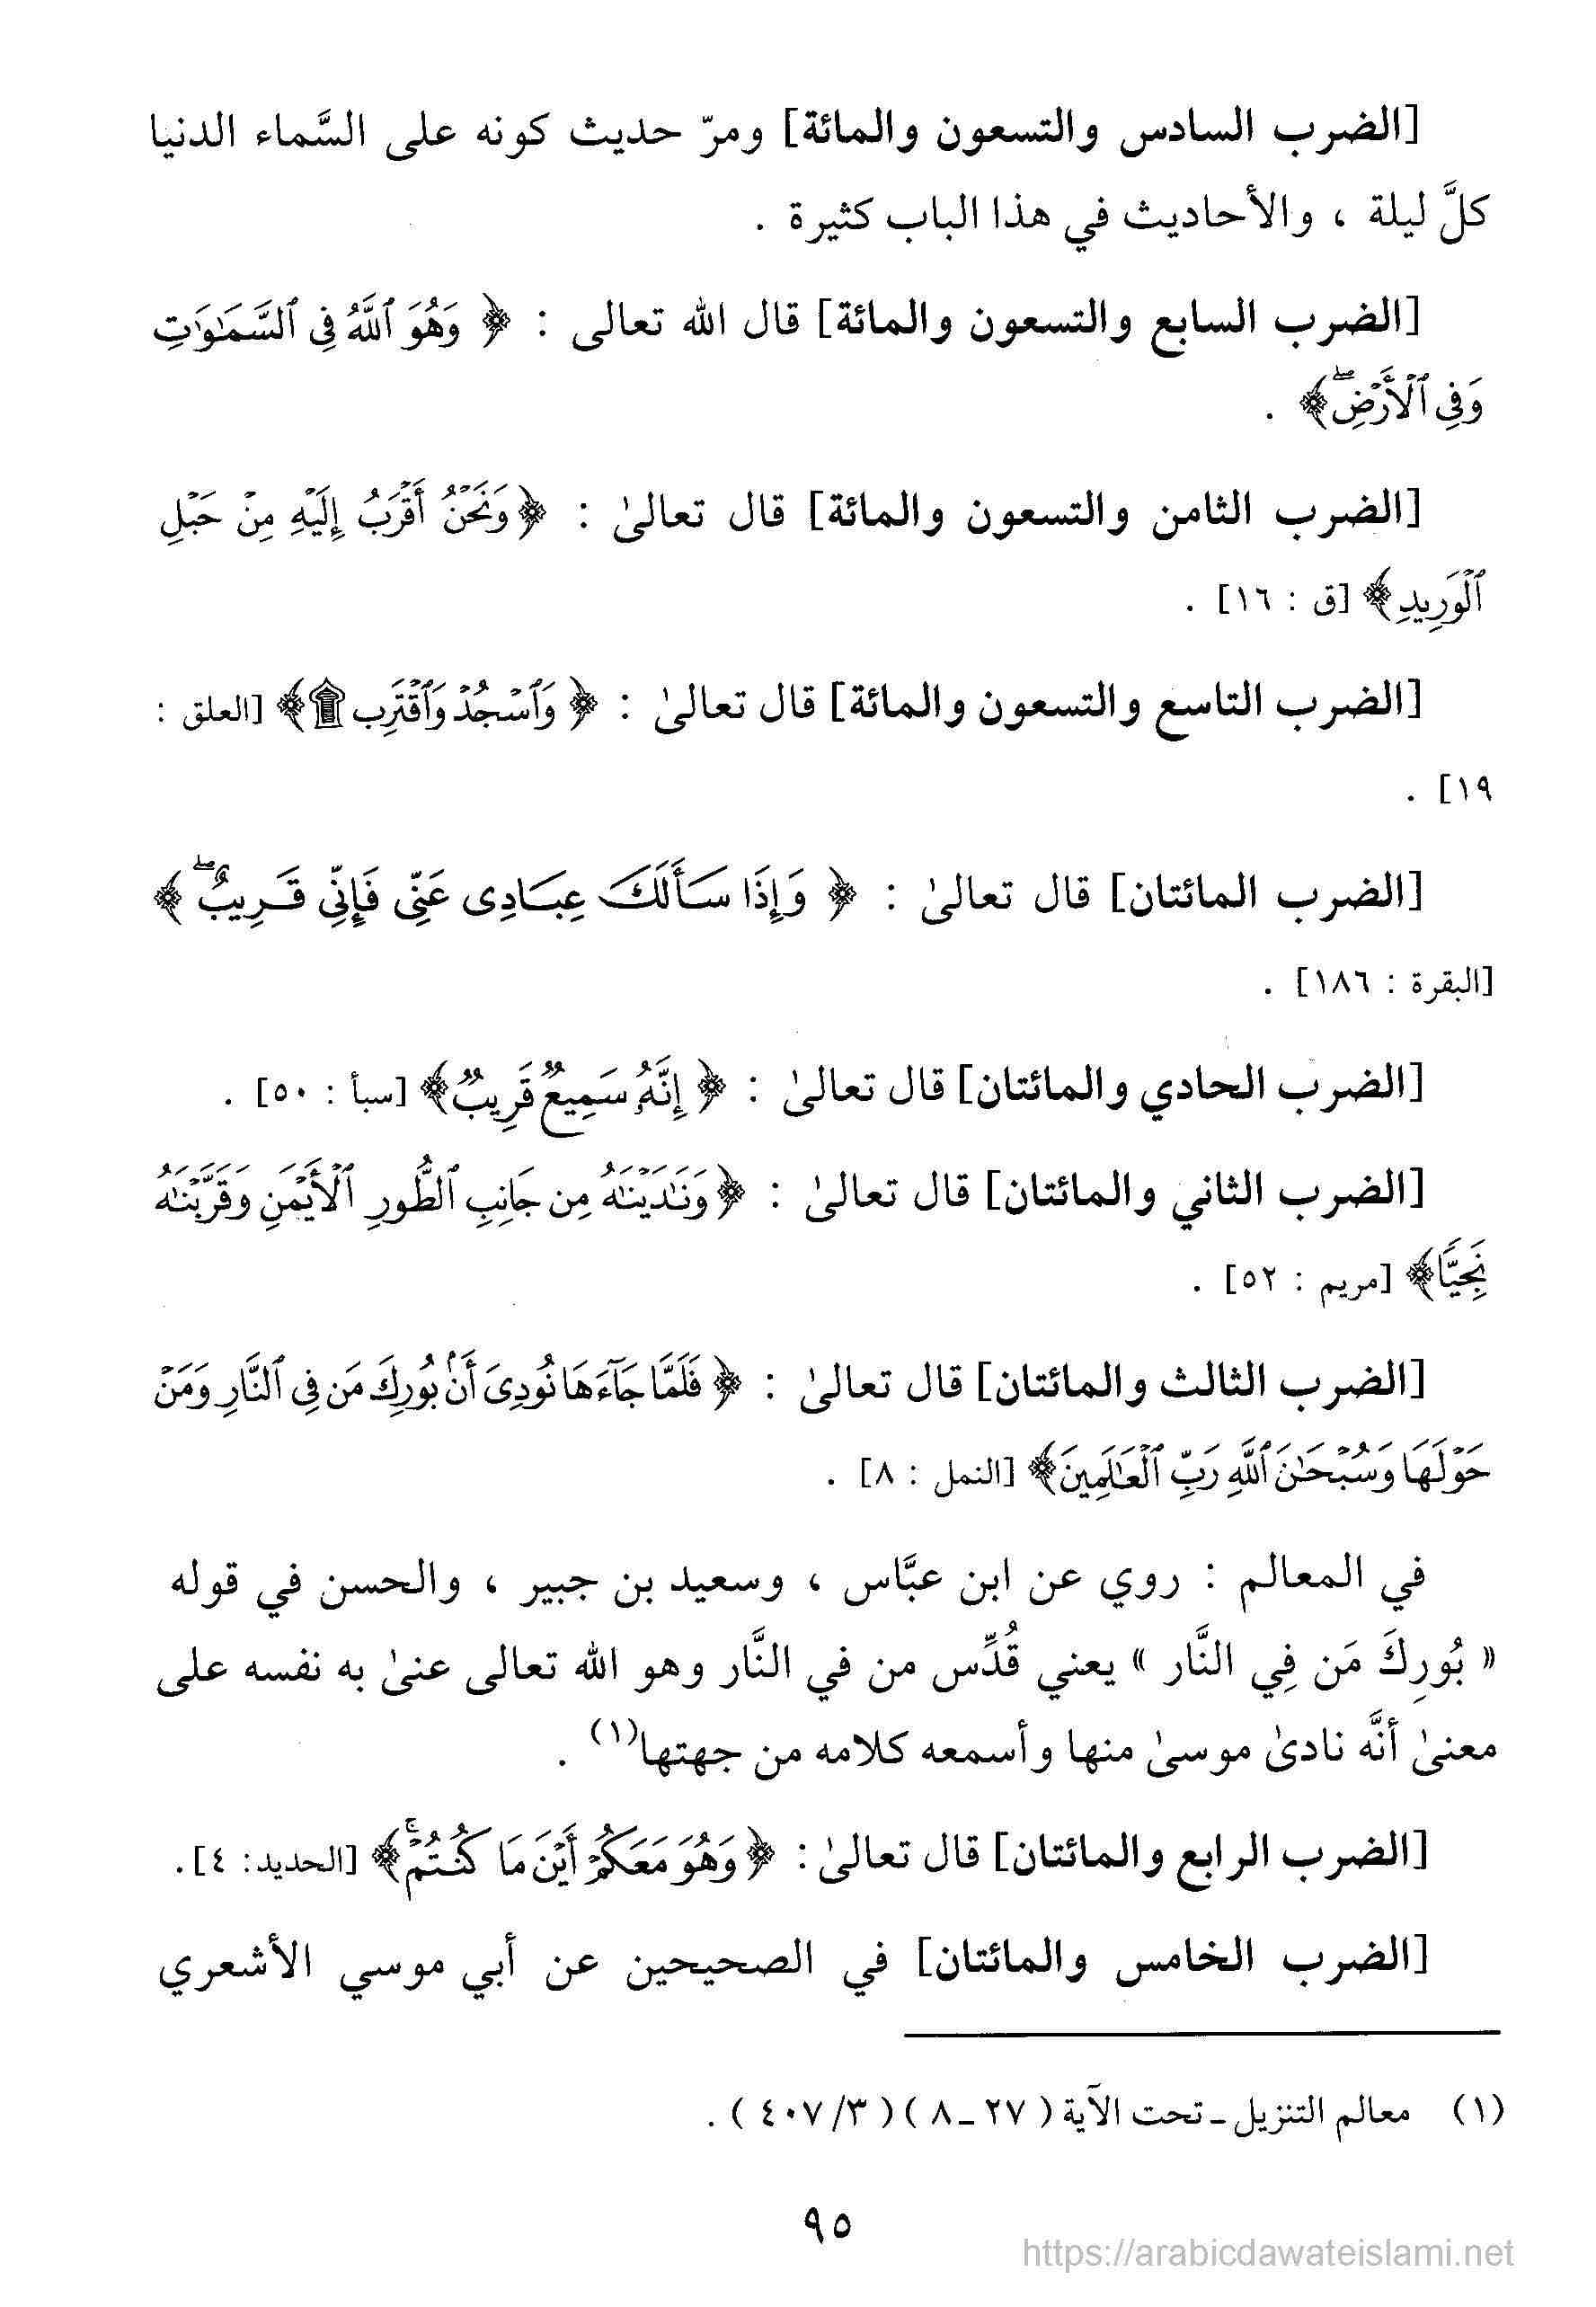 [الضرب السادس والتسعون والمائة] ومرّ حديث كونه على السَّماء الدنيا
كلَّ ليلة ، والأحاديث في هذا الباب كثيرة .
[الضرب السابع والتسعون والمائة] قال الله تعالى : ﴿ وَهُوَ ٱللَّهُ فِى ٱلسَّمَـٰوَٰتِ
وَفِى ٱلْأَرْضِ ۖ﴾ .
[الضرب الثامن والتسعون والمائة] قال تعالىٰ : ﴿وَنَحْنُ أَقْرَبُ إِلَيْهِ مِنْ حَبْلِ
ٱلْوَرِيدِ﴾ [ق : ١٦] .
[الضرب التاسع والتسعون والمائة] قال تعالىٰ : ﴿ وَٱسْجُدْ وَٱقْتَرِب ۩﴾ [العلق :
١٩] .
[الضرب المائتان] قال تعالىٰ : ﴿ وَإِذَا سَأَلَكَ عِبَادِى عَنِّى فَإِنِّى قَرِيبٌ ۖ ﴾
[البقرة : ١٨٦] .
[الضرب الحادي والمائتان] قال تعالىٰ : ﴿ إِنَّهُۥ سَمِيعٌ قَرِيبٌ﴾ [سبأ : ٥٠] .
[الضرب الثاني والمائتان] قال تعالىٰ : ﴿وَنَـٰدَيْنَـٰهُ مِن جَانِبِ ٱلطُّورِ ٱلْأَيْمَنِ وَقَرَّبْنَـٰهُ
نَجِيًّا﴾ [مريم : ٥٢] .
[الضرب الثالث والمائتان] قال تعالىٰ : ﴿ فَلَمَّا جَآءَهَا نُودِىَ أَنۢ بُورِكَ مَن فِى ٱلنَّارِ وَمَنْ
حَوْلَهَا وَسُبْحَـٰنَ ٱللَّهِ رَبِّ ٱلْعَـٰلَمِينَ﴾ [النمل : ٨] .
في المعالم : روي عن ابن عبَّاس ، وسعيد بن جبير ، والحسن في قوله
« بُورِكَ مَن فِي النَّار » يعني قُدِّس من في النَّار وهو الله تعالى عنىٰ به نفسه على
معنىٰ أنَّه نادىٰ موسىٰ منها وأسمعه كلامه من جهتها(١) .
[الضرب الرابع والمائتان] قال تعالىٰ : ﴿وَهُوَ مَعَكُمْ أَيْنَ مَا كُنتُمْ ۚ﴾ [الحديد: ٤].
[الضرب الخامس والمائتان] في الصحيحين عن أبي موسي الأشعري
(١) معالم التنزيل ـ تحت الآية ( ٢٧ ـ ٨ ) ( ٣/ ٤٠٧ ) .
٩٥
https://arabicdawateislami.net